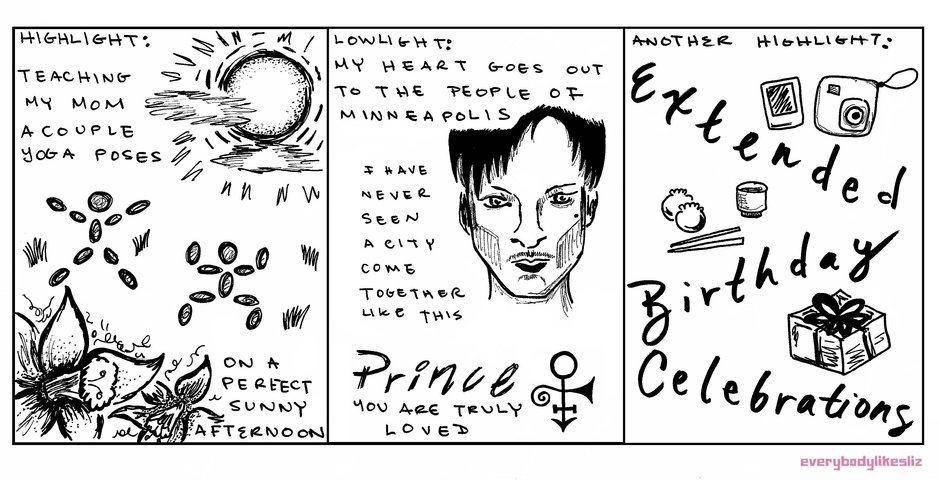 HIGHLIGHT:
TEACHING
MY MOM
A COUPLE
YOGA POSES
ON A
PERFECT
SUNNY
AFTERNOON
LOWLIGHT:
MY HEART GOES OUT
TO THE PEOPLE OF
MINNEAPOLIS
I HAVE
NEVER
SEEN
A CITY
COME
TOGETHER
LIKE THIS
Prince
YOU ARE TRULY
LOVED
ANOTHER HIGHLIGHT:
Extended
Birthday
Celebrations
everybodylikesliz